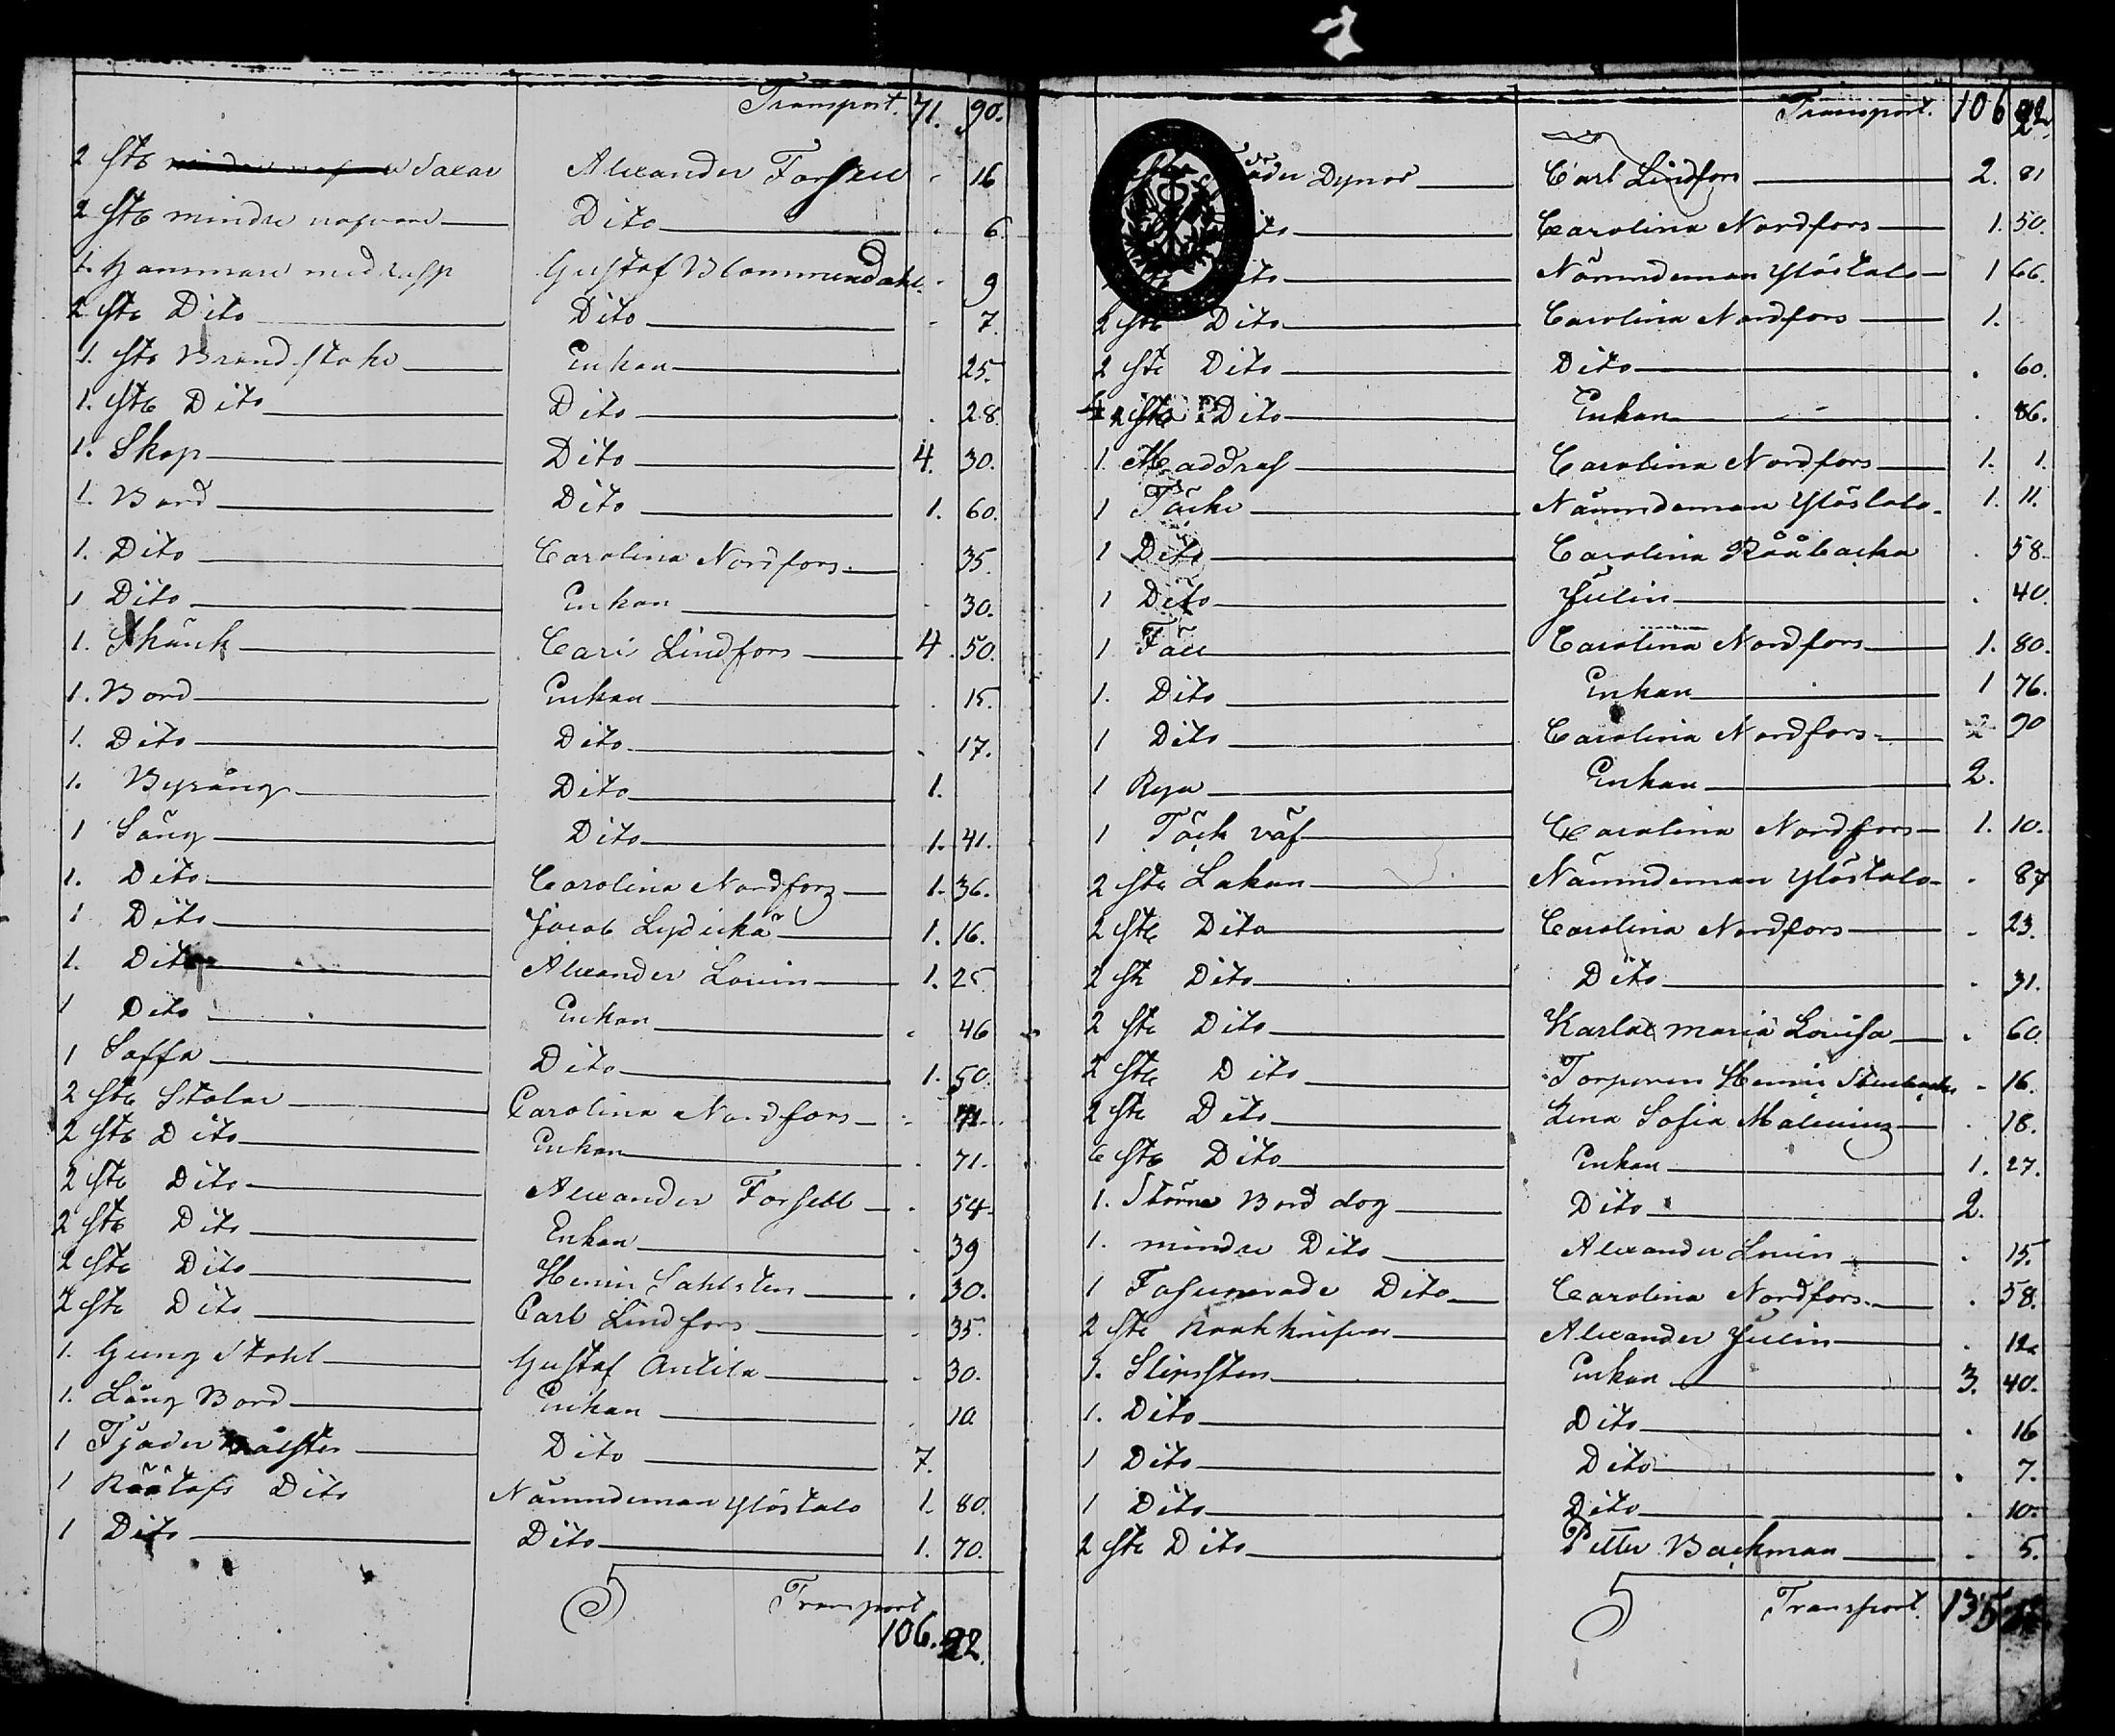 Transport. 71. 90.
2 stc Saxar Alexander Forsell . 16
2 stc mindre nafvare Dito . 6.
1. Hammare med rasp Gustaf Blommendahl . 9
2 stc Dito Dito . 7.
1. stc Brandstake Enkan 25.
1. stc Dito Dito . 28.
1. Skop Dito 4. 30.
1. Bord Dito 1. 60.
1. Dito Carolina Nordfors . 35.
1 Dito Enkan . 30.
1. Skänk Carl Lindfors 4. 50.
1. Bord Enkan . 15.
1. Dito Dito . 17.
1. Byrång Dito 1.
1 Säng Dito 1. 41.
1. Dito Carolina Nordfors 1. 36.
1 Dito Jacob Lydickä 1. 16.
1. Dito Alexander Lovin 1. 25.
1 Dito Enkan . 46
1 Soffa Dito 1. 50.
2 stc Stolar Carolina Nordfors .
2 stc Dito Enkan . 71.
2 stc Dito Alexander Forsell . 54.
2 stc Dito Enkan . 39
2 stc Dito Henric Sahlsten . 30.
2 stc Dito Carl Lindfors . 35.
1. Gung Stohl Gustaf Antila . 30.
1. Lång Bord Enkan . 10.
1 Fjäder Dito 7.
1 Dito Nämndeman Ylöstalo 1. 80.
1 Dito Dito 1. 70.
Transport
106. 22.
Transport. 106 22.
Dynor Carl Lindfors 2. 81
Carolina Nordfors 1. 50.
Nämndeman Ylöstalo 1 66.
2 stc Dito Carolina Nordfors 1.
2 stc Dito Dito . 60.
stc Dito Enkan . 86.
1 Maddras Carolina Nordfors 1. 1.
1 Täcke Nämndeman Ylöstalo 1. 11.
1 Dito Carolina Rååbacka . 58.
1 Dito Julin . 40.
1 Fäll Carolina Nordfors 1. 80.
1. Dito Enkan 1 76.
1 Dito Carolina Nordfors 90
1 Rya Enkan 2.
1 Täck väf Carolina Nordfors 1. 10.
2 stc Lakan Nämndeman Ylöstalo . 87
2 stc Dito Carolina Nordfors . 23.
2 st Dito Dito . 31.
2 stc Dito Maria Lovisa . 60.
2 stc Dito Torparen Henric . 16.
2 stc Dito Lena Sofia Malenius . 18.
6 stc Dito Enkan 1. 27.
1. Större Bord dog Dito 2.
1. mindre Dito Alexander Lovin . 15.
1 Dito Carolina Nordfors . 58.
2 stc Rakknifvar Alexander Julin . 12.
1. Slipsten Enkan 3. 40.
1. Dito Dito . 16
1 Dito Dito . 7.
1 Dito Dito . 10.
2 stc Dito Petter Backman . 5.
Transport. 135